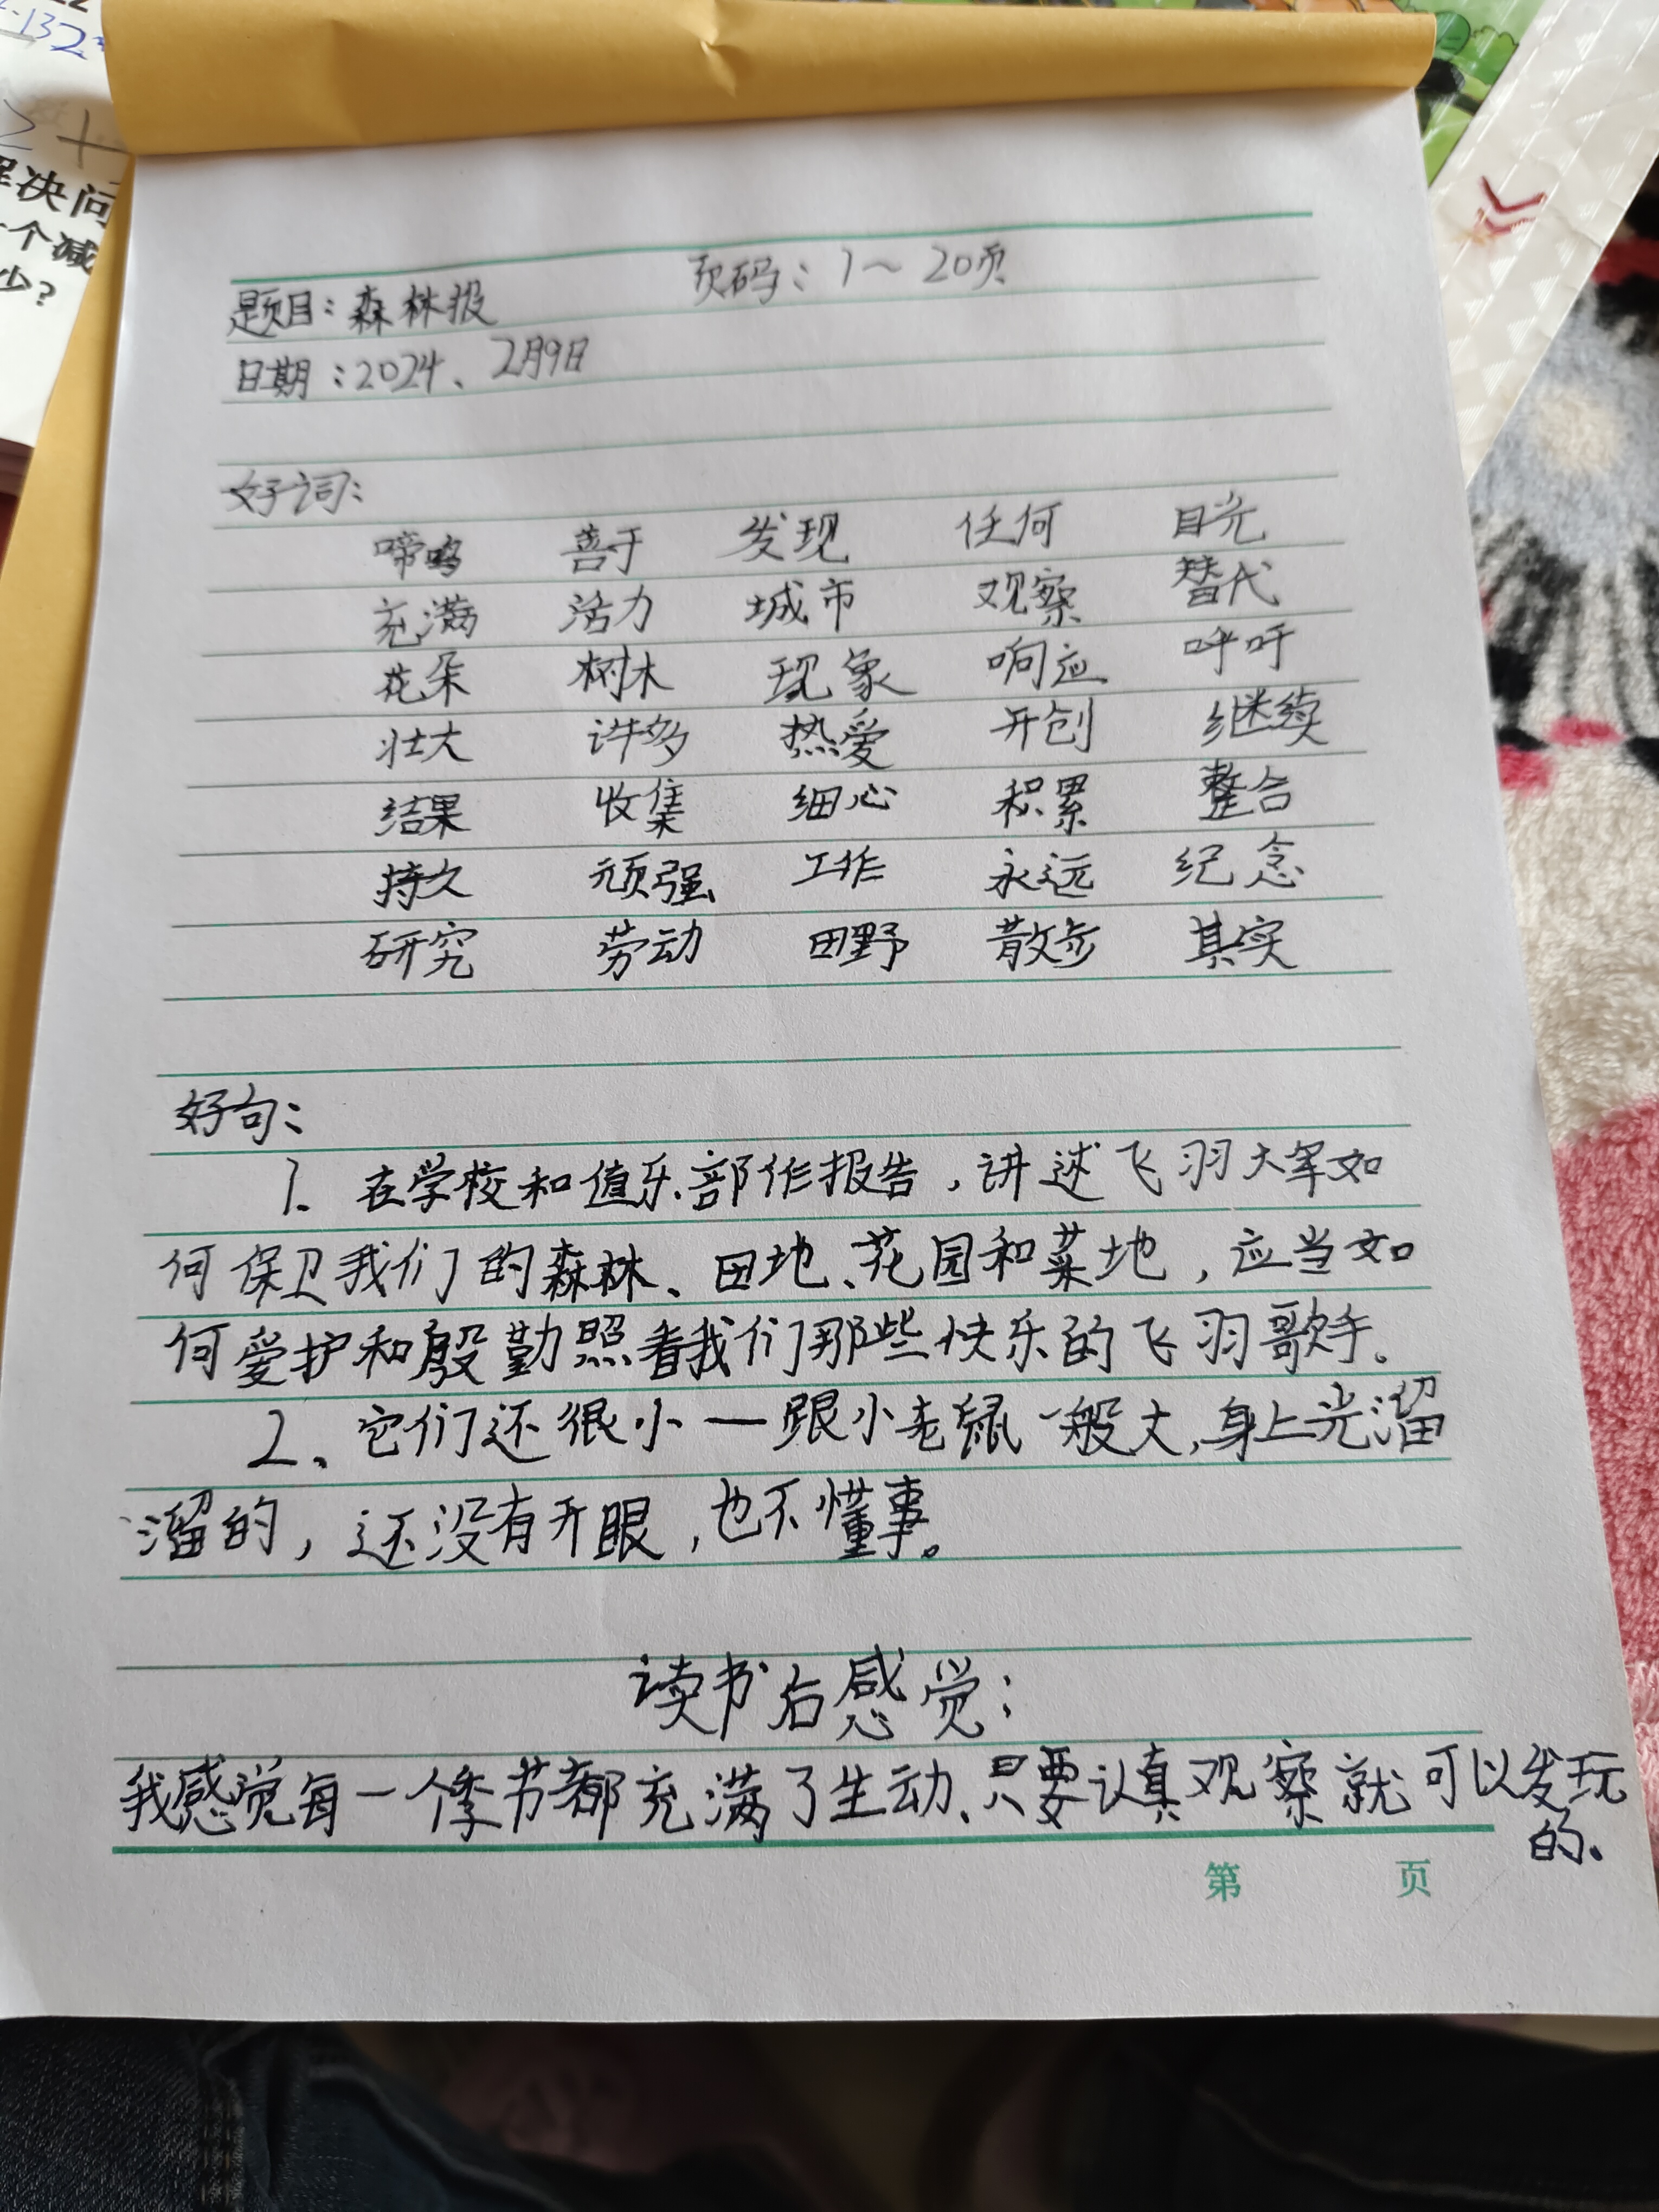 132
2+
决问
个减
少?
题目：森林报 页码：1～20页
日期：2024、2月9日
好词：
啼鸣 善于 发现 任何 目光
充满 活力 城市 观察 替代
花朵 树木 现象 响应 呼吁
壮大 许多 热爱 开创 继续
结果 收集 细心 积累 整合
持久 顽强 工作 永远 纪念
研究 劳动 田野 散步 其实
好句：
1、在学校和值乐部作报告，讲述飞羽大军如
何保卫我们的森林、田地、花园和菜地，应当如
何爱护和殷勤照看我们那些快乐的飞羽歌手。
2、它们还很小一跟小老鼠一般大，身上光溜
溜的，还没有开眼，也不懂事。
读书后感觉：
我感觉每一个季节都充满了生动、只要认真观察就可以发现
的、
第 页